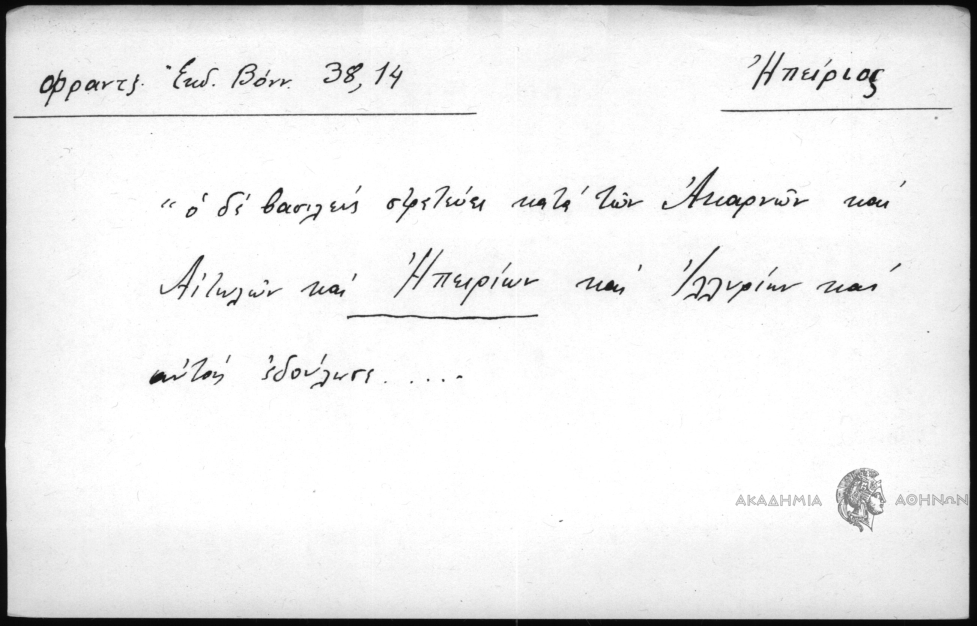 Φραντζ. Ἐκδ. Βόνν. 38,14
Ἠπείριος
"ὁ δέ βασιλεύς στρετεύει κατά τῶν Ἀκαρνῶν καί
Αἰτωλῶν καί Ἠπειρίων καί Ἰλλυρίων καί
αὐτούς ἐδούλωσε.....
ΑΚΑΔΗΜΙΑ ΑΘΗΝΩΝ